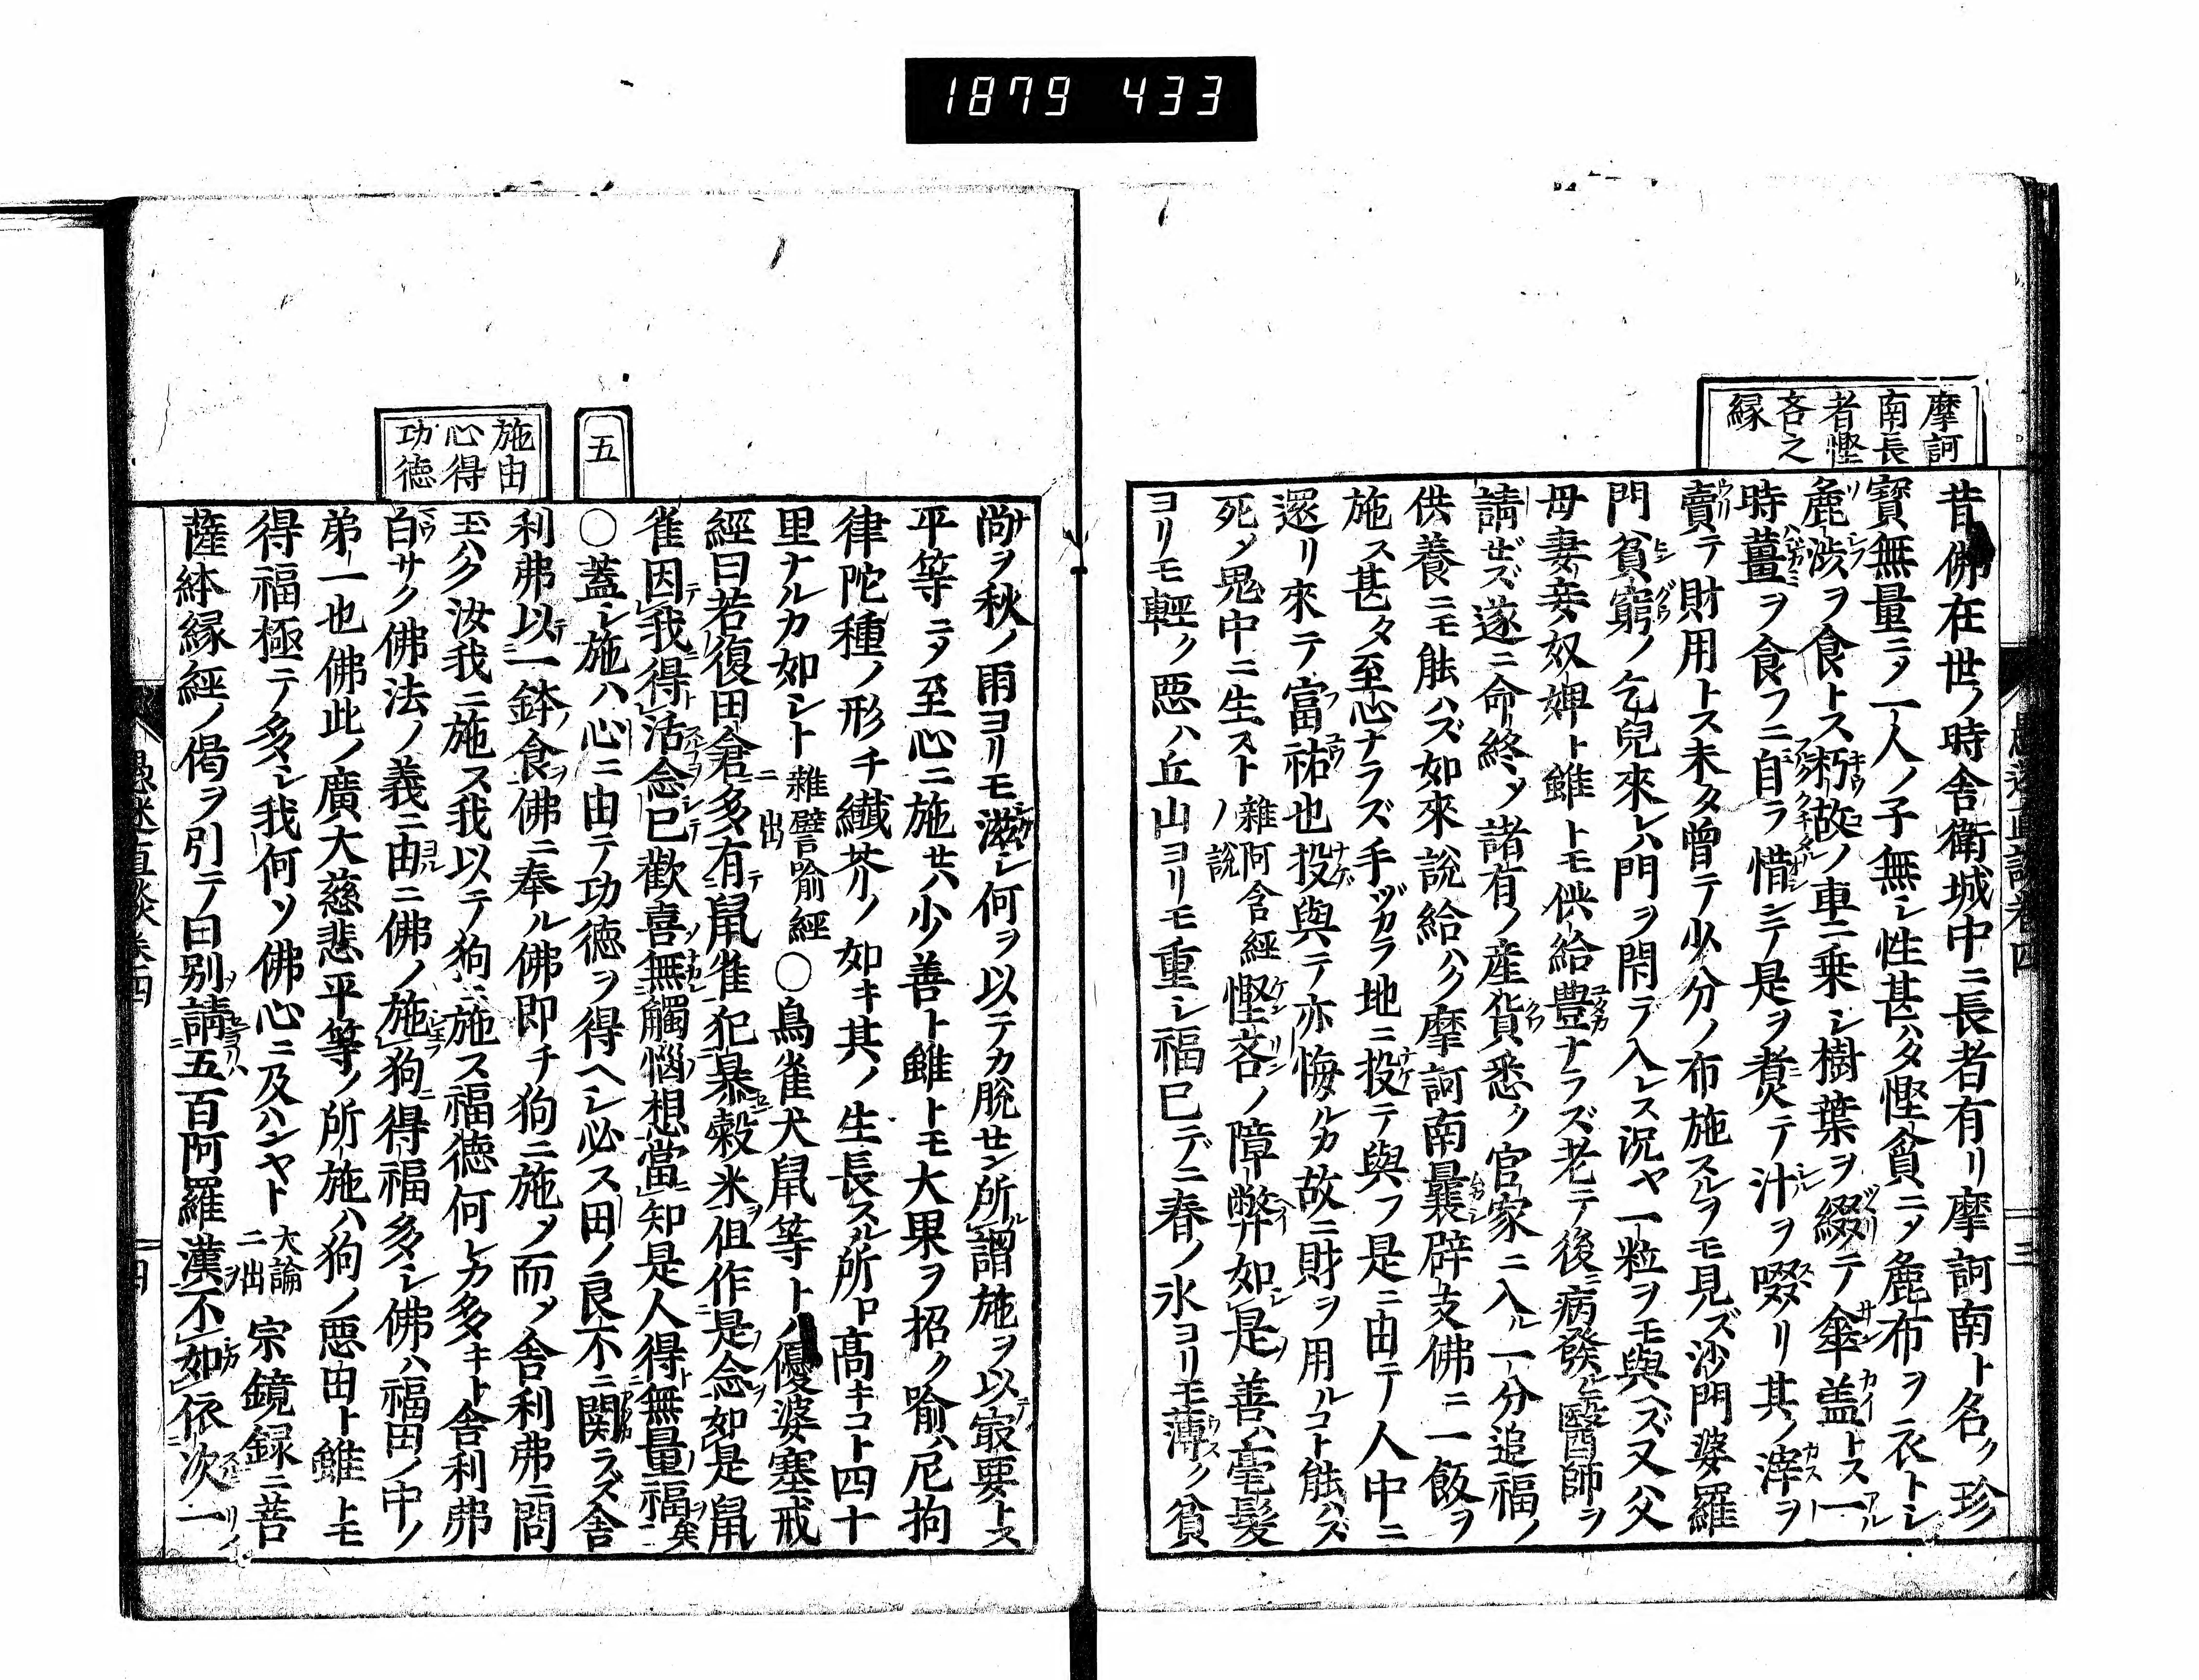 1879 433
摩訶
南長
者慳
吝之
縁
昔佛在世ノ時舎衛城中ニ長者有リ摩訶南ト名ク珍
寳無量ニメ一人ノ子無シ性甚ハタ慳貪ニメ麁布ヲ衣トシ
麁渋ヲ食トス朽故ノ車ニ乗シ樹葉ヲ綴テ傘盖トス一
時薑ヲ食フニ自ラ惜ンテ是ヲ煑テ汁ヲ啜リ其ノ滓ヲ
賣テ財用トス未タ曽テ少分ノ布施スルヲモ見ズ沙門婆羅
門貧窮ノ乞兒來レハ門ヲ閇ラ入レス況ヤ一粒ヲモ與ヘズ又父
母妻妾奴婢ト雖トモ供給豊ナラズ老テ後ニ病發レ𪜈醫師ヲ
請ゼズ遂ニ命終ソ諸有ノ産貨悉ク官家ニ入ル一分追福ノ
供養ニモ能ハズ如來説給ハク摩訶南曩辟支佛ニ一飯ヲ
施ス甚タ至心ナラズ手ヅカラ地ニ投テ與フ是ニ由テ人中ニ
還リ來テ富祐也投與テ亦悔ルカ故ニ財ヲ用ルコト能ハズ
死メ鬼中ニ生スト雜阿含經ノ説慳吝ノ障弊如是善ハ毫髪
ヨリモ輕ク惡ハ丘山ヨリモ重シ福已デニ春ノ氷ヨリモ薄ク貧
五
施由
心得
功徳
尚ヲ秋ノ雨ヨリモ滋シ何ヲ以テカ脱セン所謂施ヲ以最要トス
平等ニメ至心ニ施セハ少善ト雖トモ大果ヲ招ク喩ハ尼拘
律陀種ノ形チ纎芥ノ如キ其ノ生長スル所ロ高キコト四十
里ナルカ如シト雜譬喩經ニ出〇鳥雀犬鼠等トハ優婆塞戒
經曰若復田倉多有鼠雀犯暴穀米俎作是念如是鼠
雀因我得活念已歡喜無觸惱想當知是人得無量福矣
〇蓋シ施ハ心ニ由テ功徳ヲ得ヘシ必ス田ノ良不ニ関ラズ舎
利弗以一鉢食佛ニ奉ル佛即チ狗ニ施メ而メ舎利弗ニ問
玉ハク汝我ニ施ス我以テ狗ニ施ス福徳何レカ多キト舎利弗
白サク佛法ノ義ニ由ニ佛ノ施狗得福多シ佛ハ福田ノ中ノ
弟一也佛此ノ廣大慈悲平等ノ所施ハ狗ノ惡田ト雖トモ
得福極テ多シ我何ソ佛心ニ及ハンヤト大論ニ出ヲ宗鏡録ニ菩
薩本縁經ノ偈ヲ引テ曰別請五百阿羅漢不如依次一